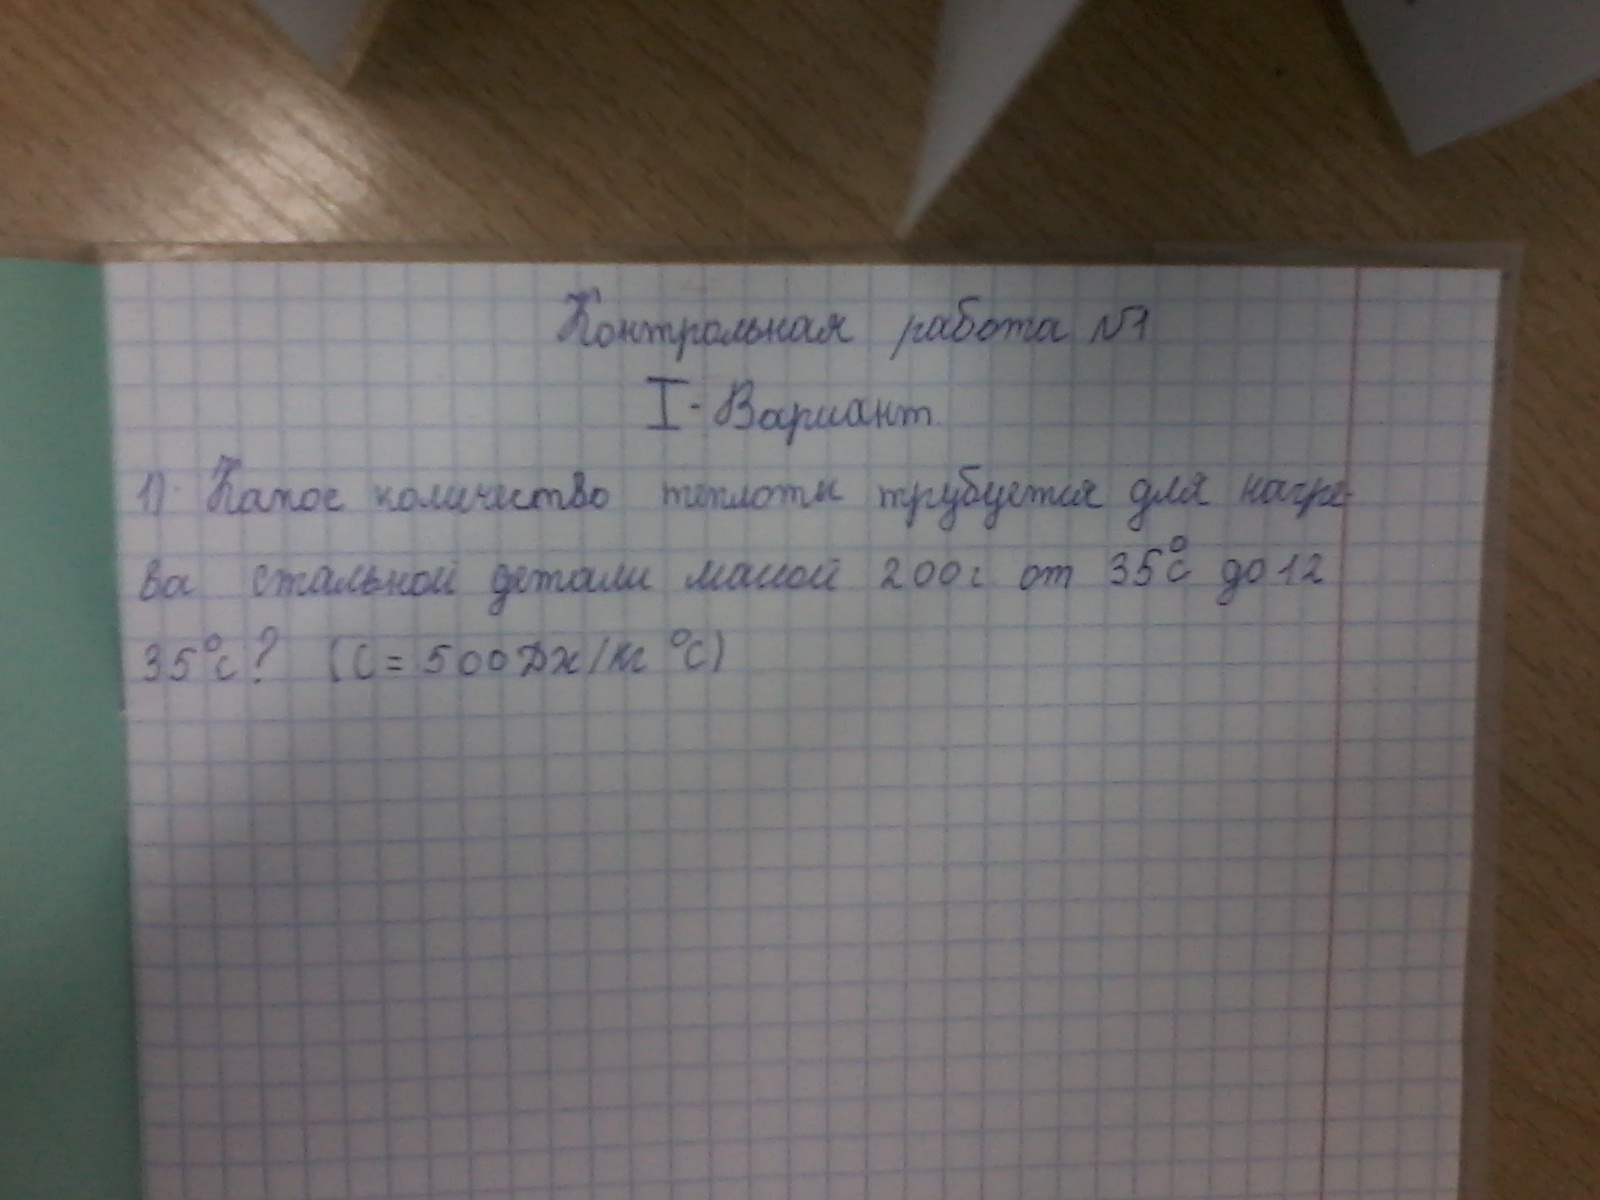 Контрольная работа №1
I - Вариант
1) Какое количество теплоты трубуется для нагре-
ва стальной детали массой 200г от 35°С до 12
35°С? (С = 500 Дж/кг °С)